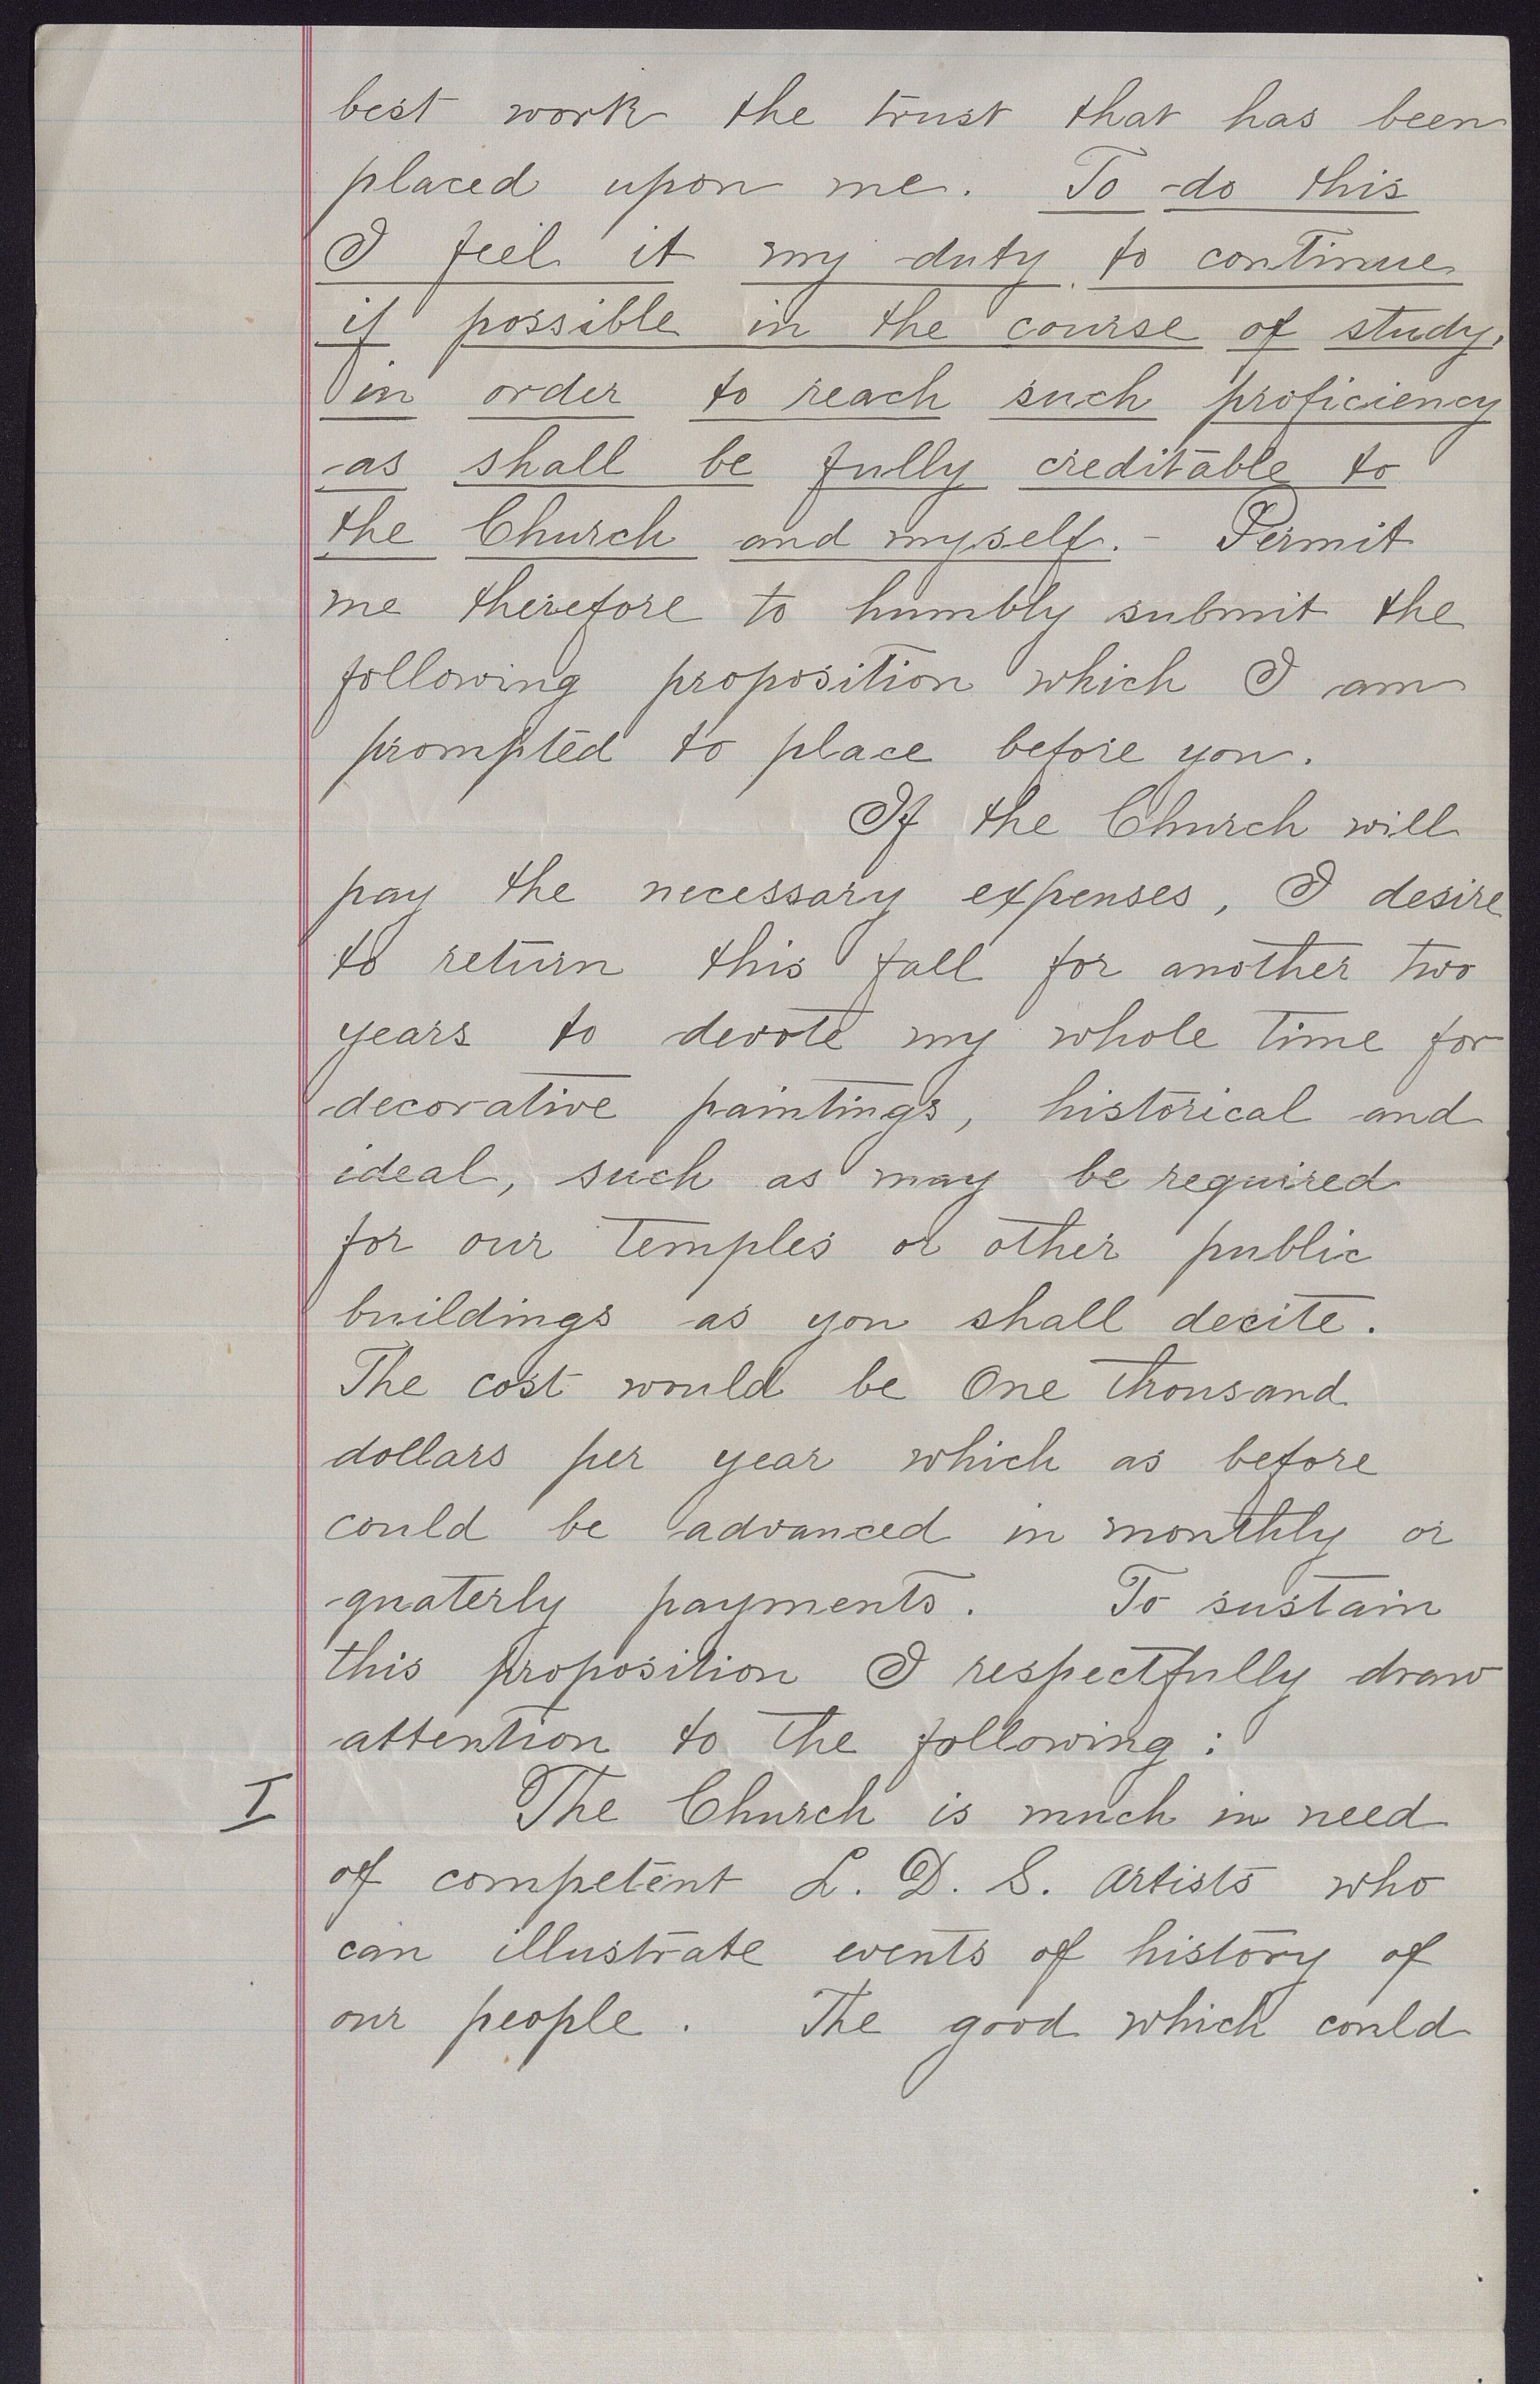 best work the trust that has been
placed upon me. To do this
I feel it my duty to continue
if possible in the course of study,
in order to reach such proficiency
as shall be fully creditable to
the Church and myself. - Permit
me therefore to humbly submit the
following proposition which I am
prompted to place before you.
If the Church will
pay the necessary expenses, I desire
to return this fall for another two
years to devote my whole time for
decorative paintings, historical and
ideal, such as may be required
for our temples or other public
buildings as you shall decite.
The cost would be One thousand
dollars per year which as before
could be advanced in monthly or
quaterly payments. To sustain
this proposition I respectfully draw
attention to the following:
I The Church is much in need
of competent L. D. S. artists who
can illustrate events of history of
our people. The good which could